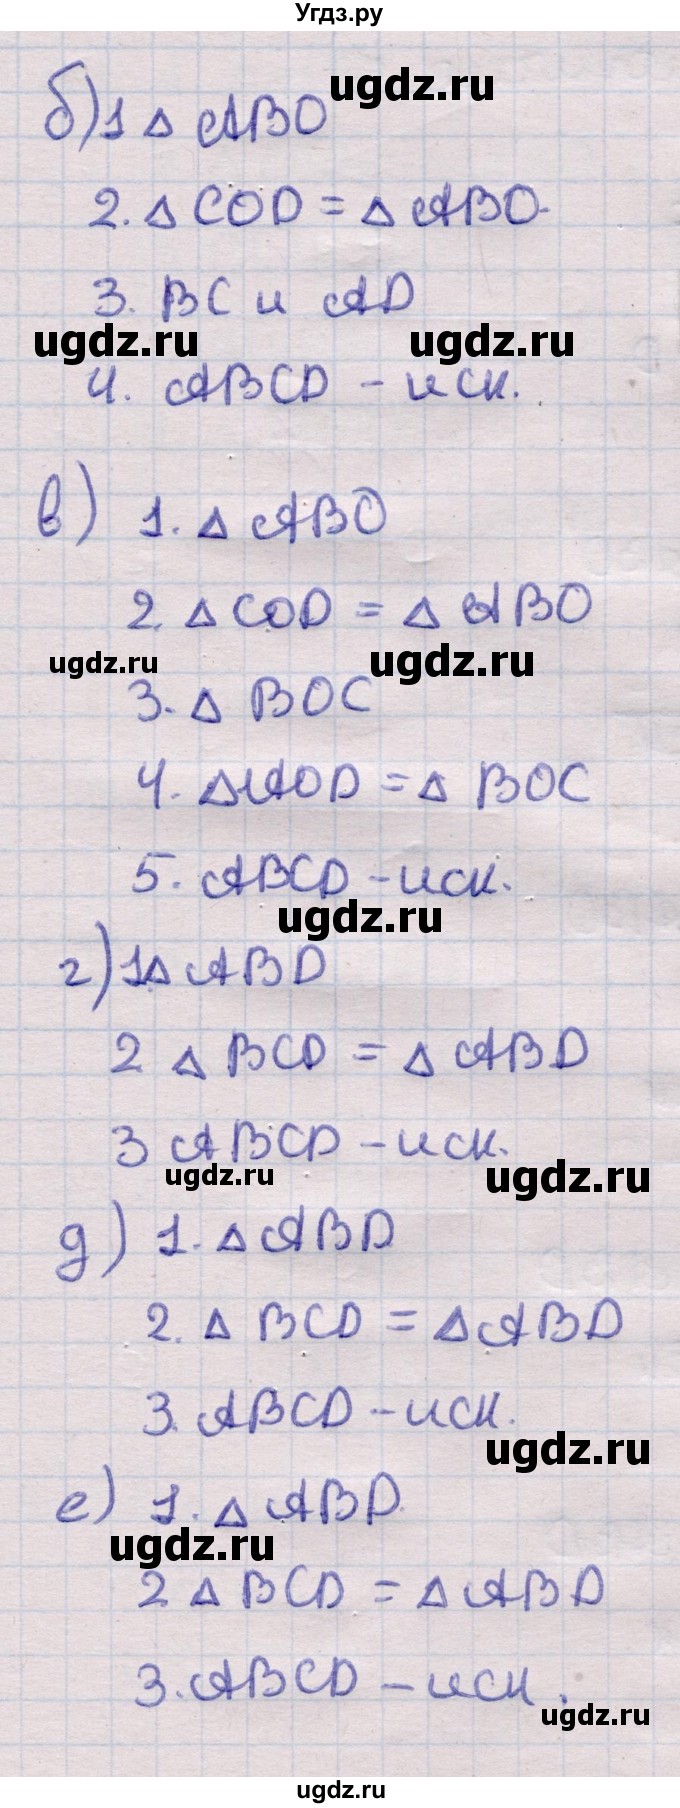 Угдз.ру
ugdz.ru
б) 1 Δ ABO
2. Δ COD = Δ ABO.
3. BC и AD
ugdz.ru ugdz.ru
4. ABCD - иск.
в) 1. Δ ABO
2. Δ COD = Δ ABO
ugdz.ru ugdz.ru
3. Δ BOC
4. Δ AOD = Δ BOC
5. ABCD - иск.
ugdz.ru
г) 1. Δ ABD
2 Δ BCD = Δ ABD
3 ABCD - иск.
ugdz.ru ugdz.ru
д) 1. Δ ABD
2. Δ BCD = Δ ABD
3. ABCD - иск.
ugdz.ru
е) 1. Δ ABD.
ugdz.ru
2. Δ BCD = Δ ABD
3. ABCD - иск.
ugdz.ru
ugdz.ru